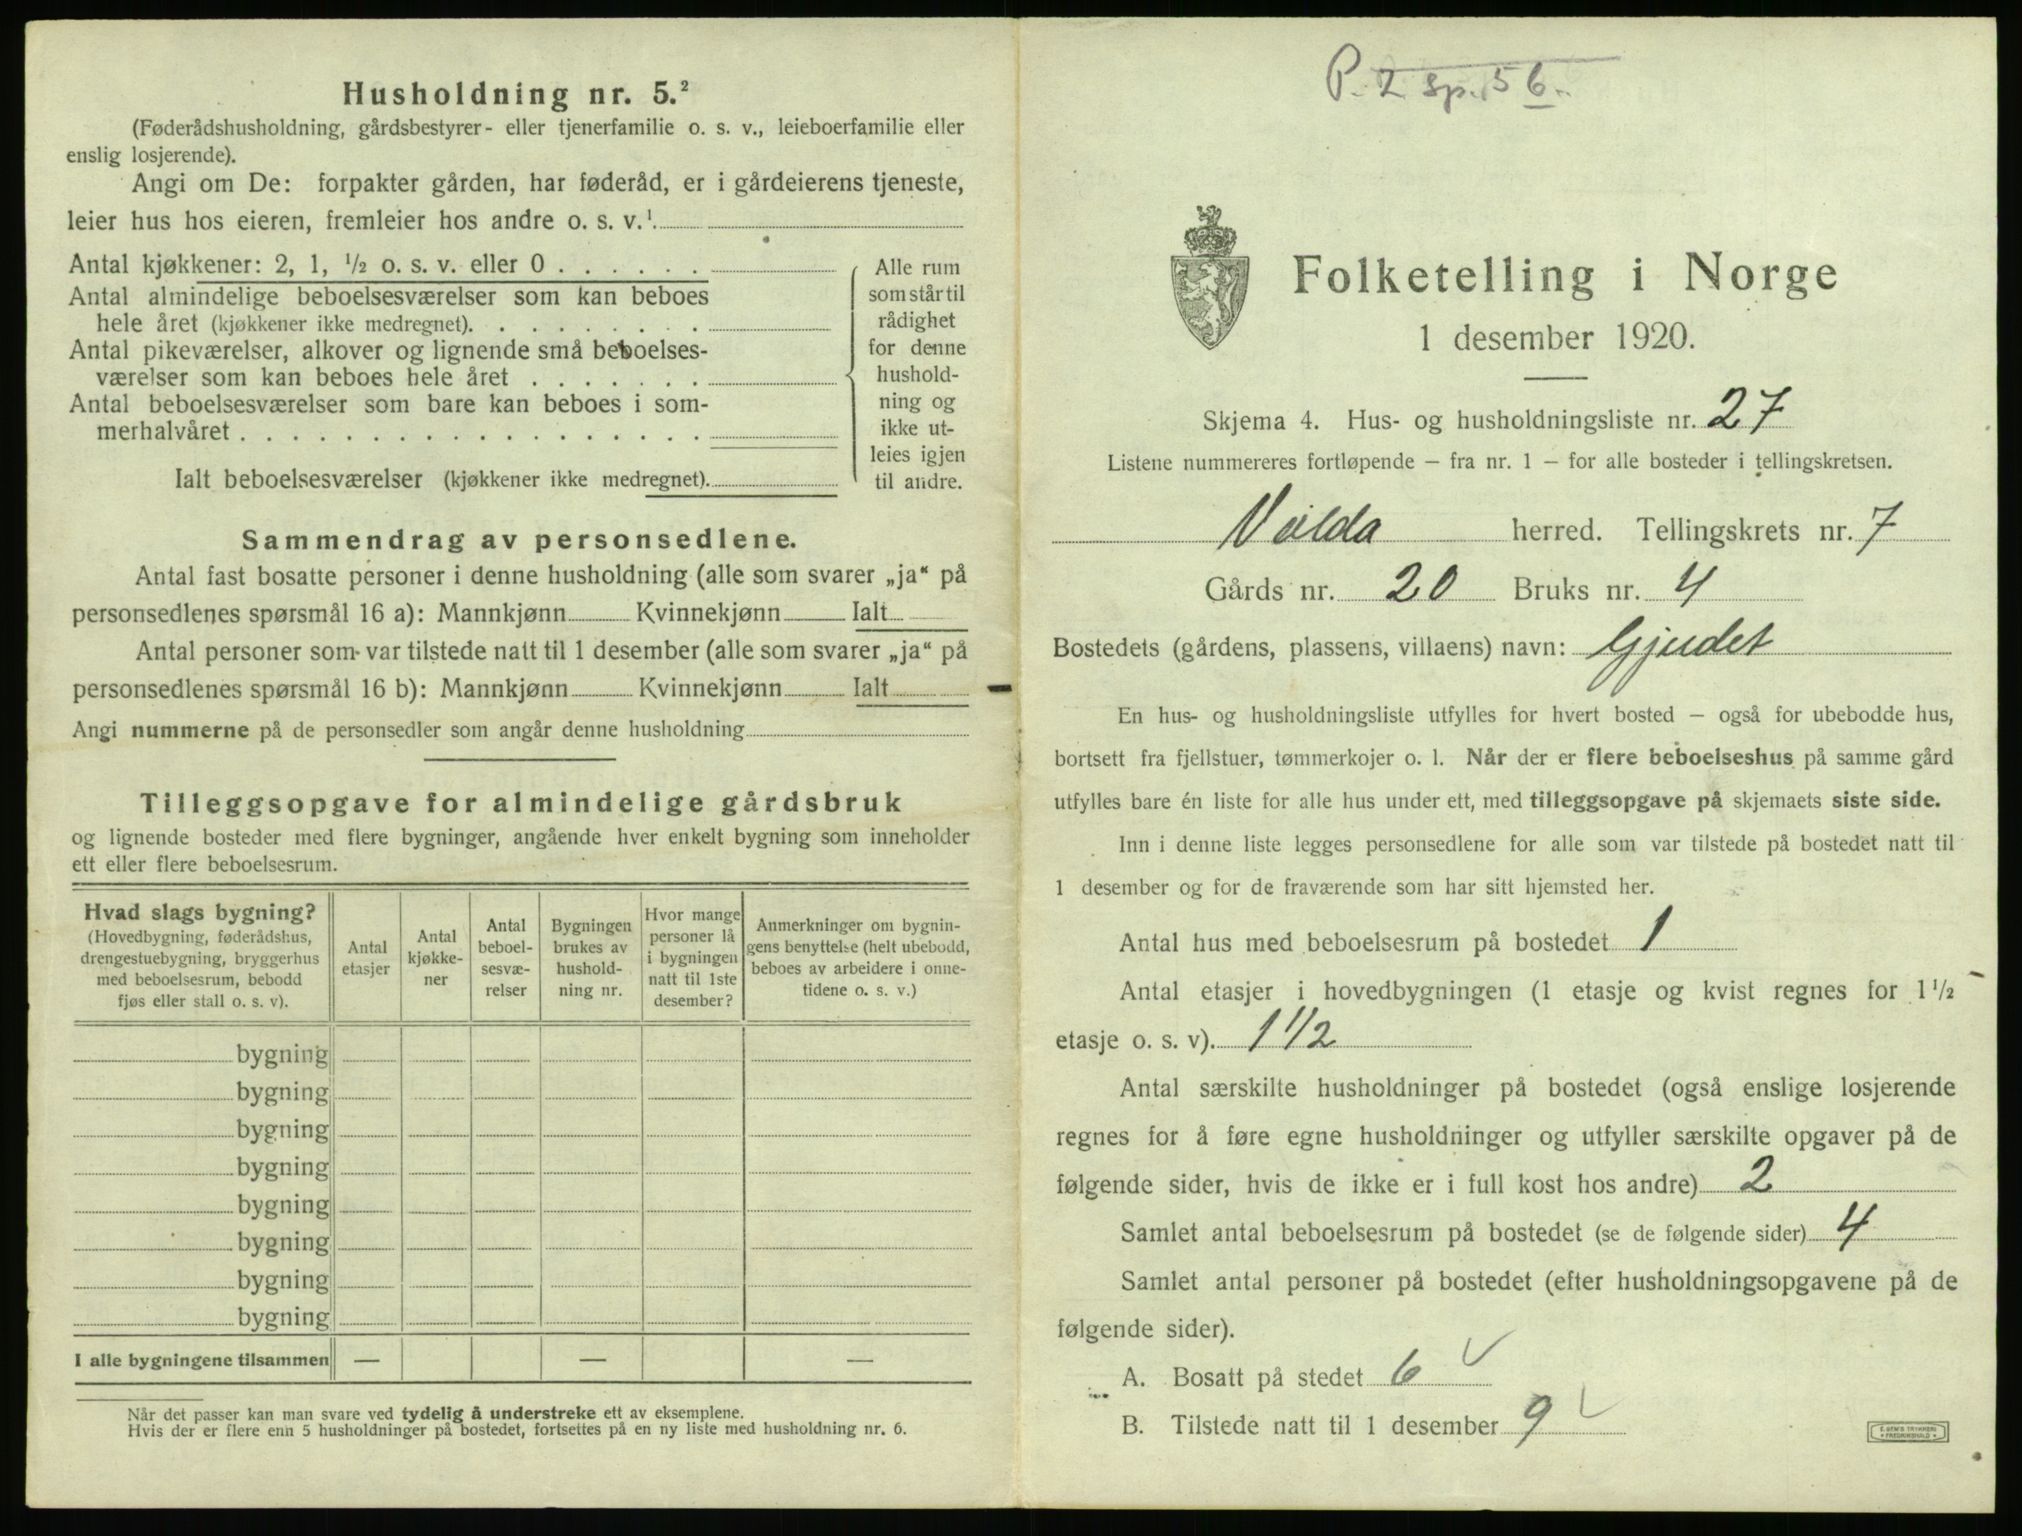 Husholdning nr. 5.²
(Føderådshusholdning, gårdsbestyrer- eller tjenerfamilie o. s. v., leieboerfamilie eller
enslig losjerende).
Angi om De: forpakter gården, har føderåd, er i gårdeierens tjeneste,
leier hus hos eieren, fremleier hos andre o. s. v.¹
Antal kjøkkener: 2, 1, ½ o. s. v. eller 0 . . . . . .
Antal almindelige beboelsesværelser som kan beboes
hele året (kjøkkener ikke medregnet). . . . . . . . .
Antal pikeværelser, alkover og lignende små beboelses-
værelser som kan beboes hele året . . . . . . .
Antal beboelsesværelser som bare kan beboes i som-
merhalvåret . . . . . . . . . . . . . . . . . .
Ialt beboelsesværelser (kjøkkener ikke medregnet).
Alle rum
som står til
rådighet
for denne
hushold-
ning og
ikke ut-
leies igjen
til andre.
Sammendrag av personsedlene.
Antal fast bosatte personer i denne husholdning (alle som svarer „ja“ på
personsedlenes spørsmål 16 a): Mannkjønn Kvinnekjønn Ialt
Antal personer som var tilstede natt til 1 desember (alle som svarer „ja“ på
personsedlenes spørsmål 16 b): Mannkjønn Kvinnekjønn Ialt
Angi nummerne på de personsedler som angår denne husholdning
Tilleggsopgave for almindelige gårdsbruk
og lignende bosteder med flere bygninger, angående hver enkelt bygning som inneholder
ett eller flere beboelsesrum.
Hvad slags bygning?
(Hovedbygning, føderådshus,
drengestuebygning, bryggerhus
med beboelsesrum, bebodd
fjøs eller stall o. s. v).
Antal
etasjer
Antal
kjøkke-
ner
Antal
beboel-
sesvæ-
relser
Bygningen
brukes av
hushold-
ning nr.
Hvor mange
personer lå
i bygningen
natt til 1ste
desember?
Anmerkninger om bygnin-
gens benyttelse (helt ubebodd,
beboes av arbeidere i onne-
tidene o. s. v.)
bygning
bygning
bygning
bygning
bygning
bygning
bygning
bygning
I alle bygningene tilsammen — — —
Når det passer kan man svare ved tydelig å understreke ett av eksemplene.
Hvis der er flere enn 5 husholdninger på bostedet, fortsettes på en ny liste med husholdning nr. 6.
P. 2 sp. 5 6.
Folketelling i Norge
1 desember 1920.
Skjema 4. Hus- og husholdningsliste nr. 27
Listene nummereres fortløpende – fra nr. 1 – for alle bosteder i tellingskretsen.
Volda herred. Tellingskrets nr. 7
Gårds nr. 20 Bruks nr. 4
Bostedets (gårdens, plassens, villaens) navn: Gjudet
En hus- og husholdningsliste utfylles for hvert bosted – også for ubebodde hus,
bortsett fra fjellstuer, tømmerkojer o. l. Når der er flere beboelseshus på samme gård
utfylles bare én liste for alle hus under ett, med tilleggsopgave på skjemaets siste side.
Inn i denne liste legges personsedlene for alle som var tilstede på bostedet natt til
1 desember og for de fraværende som har sitt hjemsted her.
Antal hus med beboelsesrum på bostedet 1
Antal etasjer i hovedbygningen (1 etasje og kvist regnes for 1½
etasje o. s. v). 1 1/2
Antal særskilte husholdninger på bostedet (også enslige losjerende
regnes for å føre egne husholdninger og utfyller særskilte opgaver på de
følgende sider, hvis de ikke er i full kost hos andre) 2
Samlet antal beboelsesrum på bostedet (se de følgende sider) 4
Samlet antal personer på bostedet (efter husholdningsopgavene på de
følgende sider).
A. Bosatt på stedet 6 ✓
B. Tilstede natt til 1 desember 9 ✓